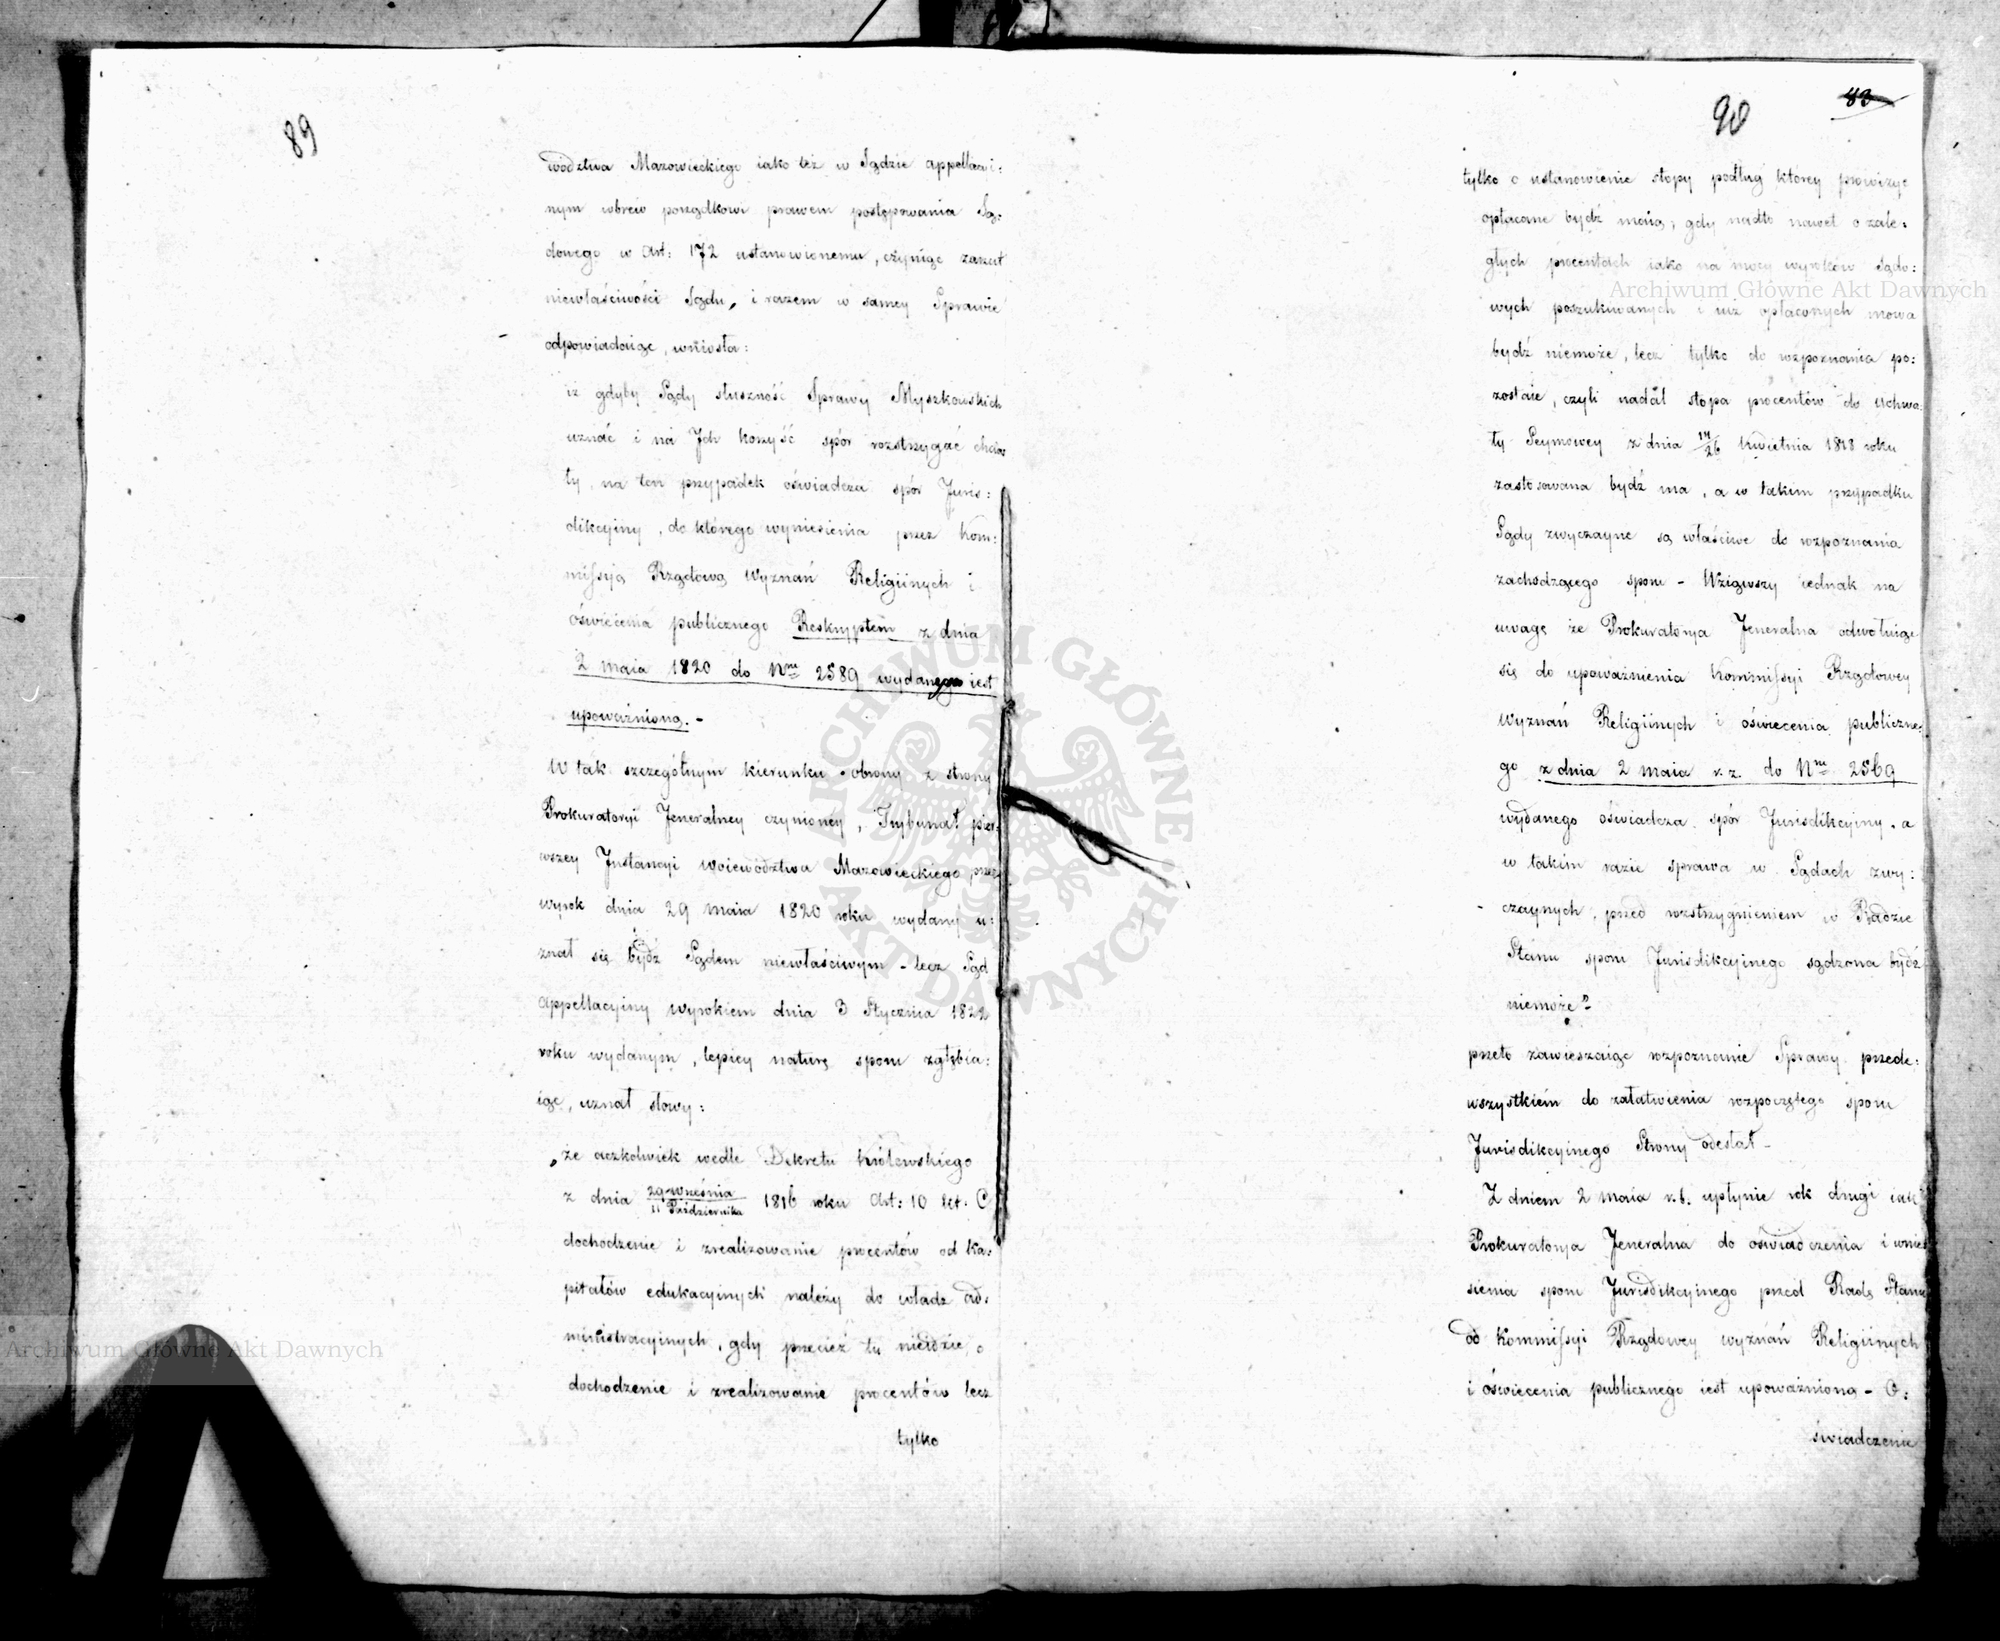 89
wództwa Mazowieckiego iako też w Sądzie appellacyi:
nym wbrew porządkowi prawem postępowania Są:
dowego w Art: 172 ustanowionemu, czyniąc zarzut
niewłaściwości Sądu, i razem w samey Sprawie
odpowiadaiąc, wniosła:
iż gdyby Sądy słuszność Sprawy Myszkowskich
uznać i na Ich korzyść spór rozstrzygać chcia:
ły, na ten przypadek oświadcza spór Juris:
dikcyiny, do którego wyniesienia przez Kom:
missyią Rządową Wyznań Religiinych i
oświecenia publicznego Reskryptem z dnia
2 maia 1820 do Nru 2589 wydanym iest
upoważnioną. -
W tak szczególnym kierunku obrony z strony
Prokuratoryi Jeneralney czynioney, Trybunał pier:
wszey Instancyi Woiewództwa Mazowieckiego przez
wyrok dnia 29 maia 1820 roku wydany u:
znał się bydź Sądem niewłaściwym - lecz Sąd
appellacyiny wyrokiem dnia 3 Stycznia 1822
roku wydanym, lepiey naturę sporu zgłębia:
iąc, uznał słowy:
„że aczkolwiek wedle Dekretu Królewskiego
z dnia 29 Września / 11 Października 1816 roku Art: 10 lit. C
dochodzenie i zrealizowanie procentów od ka:
pitałów edukacyinych należy do władz ad:
ministracyinych, gdy przecież tu nieidzie o
dochodzenie i zrealizowanie procentów lecz
tylko
90
83
tylko o ustanowienie stopy podług którey prowizye
opłacone bydź maią, gdy nadto nawet o zale:
głych procentach iako na mocy wyroków Sądo:
wych poszukiwanych i iuż opłaconych mowa
bydź niemoże, lecz tylko do rozpoznania po:
zostaie, czyli nadal stopa procentów do Uchwa:
ły Seymowey z dnia 14/26 Kwietnia 1818 roku
zastosowana bydź ma, a w takim przypadku
Sądy zwyczayne są właściwe do rozpoznania
zachodzącego sporu - Wziąwszy iednak na
uwagę że Prokuratorya Jeneralna odwołuiąc
się do upoważnienia Kommissyi Rządowey
Wyznań Religiinych i oświecenia publiczne:
go z dnia 2 maia r. z. do Nru 2569
wydanego oświadcza spór Jurisdikcyiny, a
w takim razie sprawa w Sądach zwy:
czaynych, przed rozstrzygnieniem w Radzie
Stanu sporu Jurisdikcyinego sądzona bydź
niemoże"
przeto zawieszaiąc rozpoznanie Sprawy przede:
wszystkiem do załatwienia rozpoczętego sporu
Jurisdikcyinego Strony odesłał -
Z dniem 2 maia r. b. upłynie rok drugi iak
Prokuratorya Jeneralna do oświadczenia i wnie:
sienia sporu Jurisdikcyinego przed Radę Stanu
od Kommissyi Rządowey wyznań Religiinych
i oświecenia publicznego iest upoważnioną - O:
świadczenie
Archiwum Główne Akt Dawnych
Archiwum Główne Akt Dawnych
ARCHIWUM GŁÓWNE AKT DAWNYCH